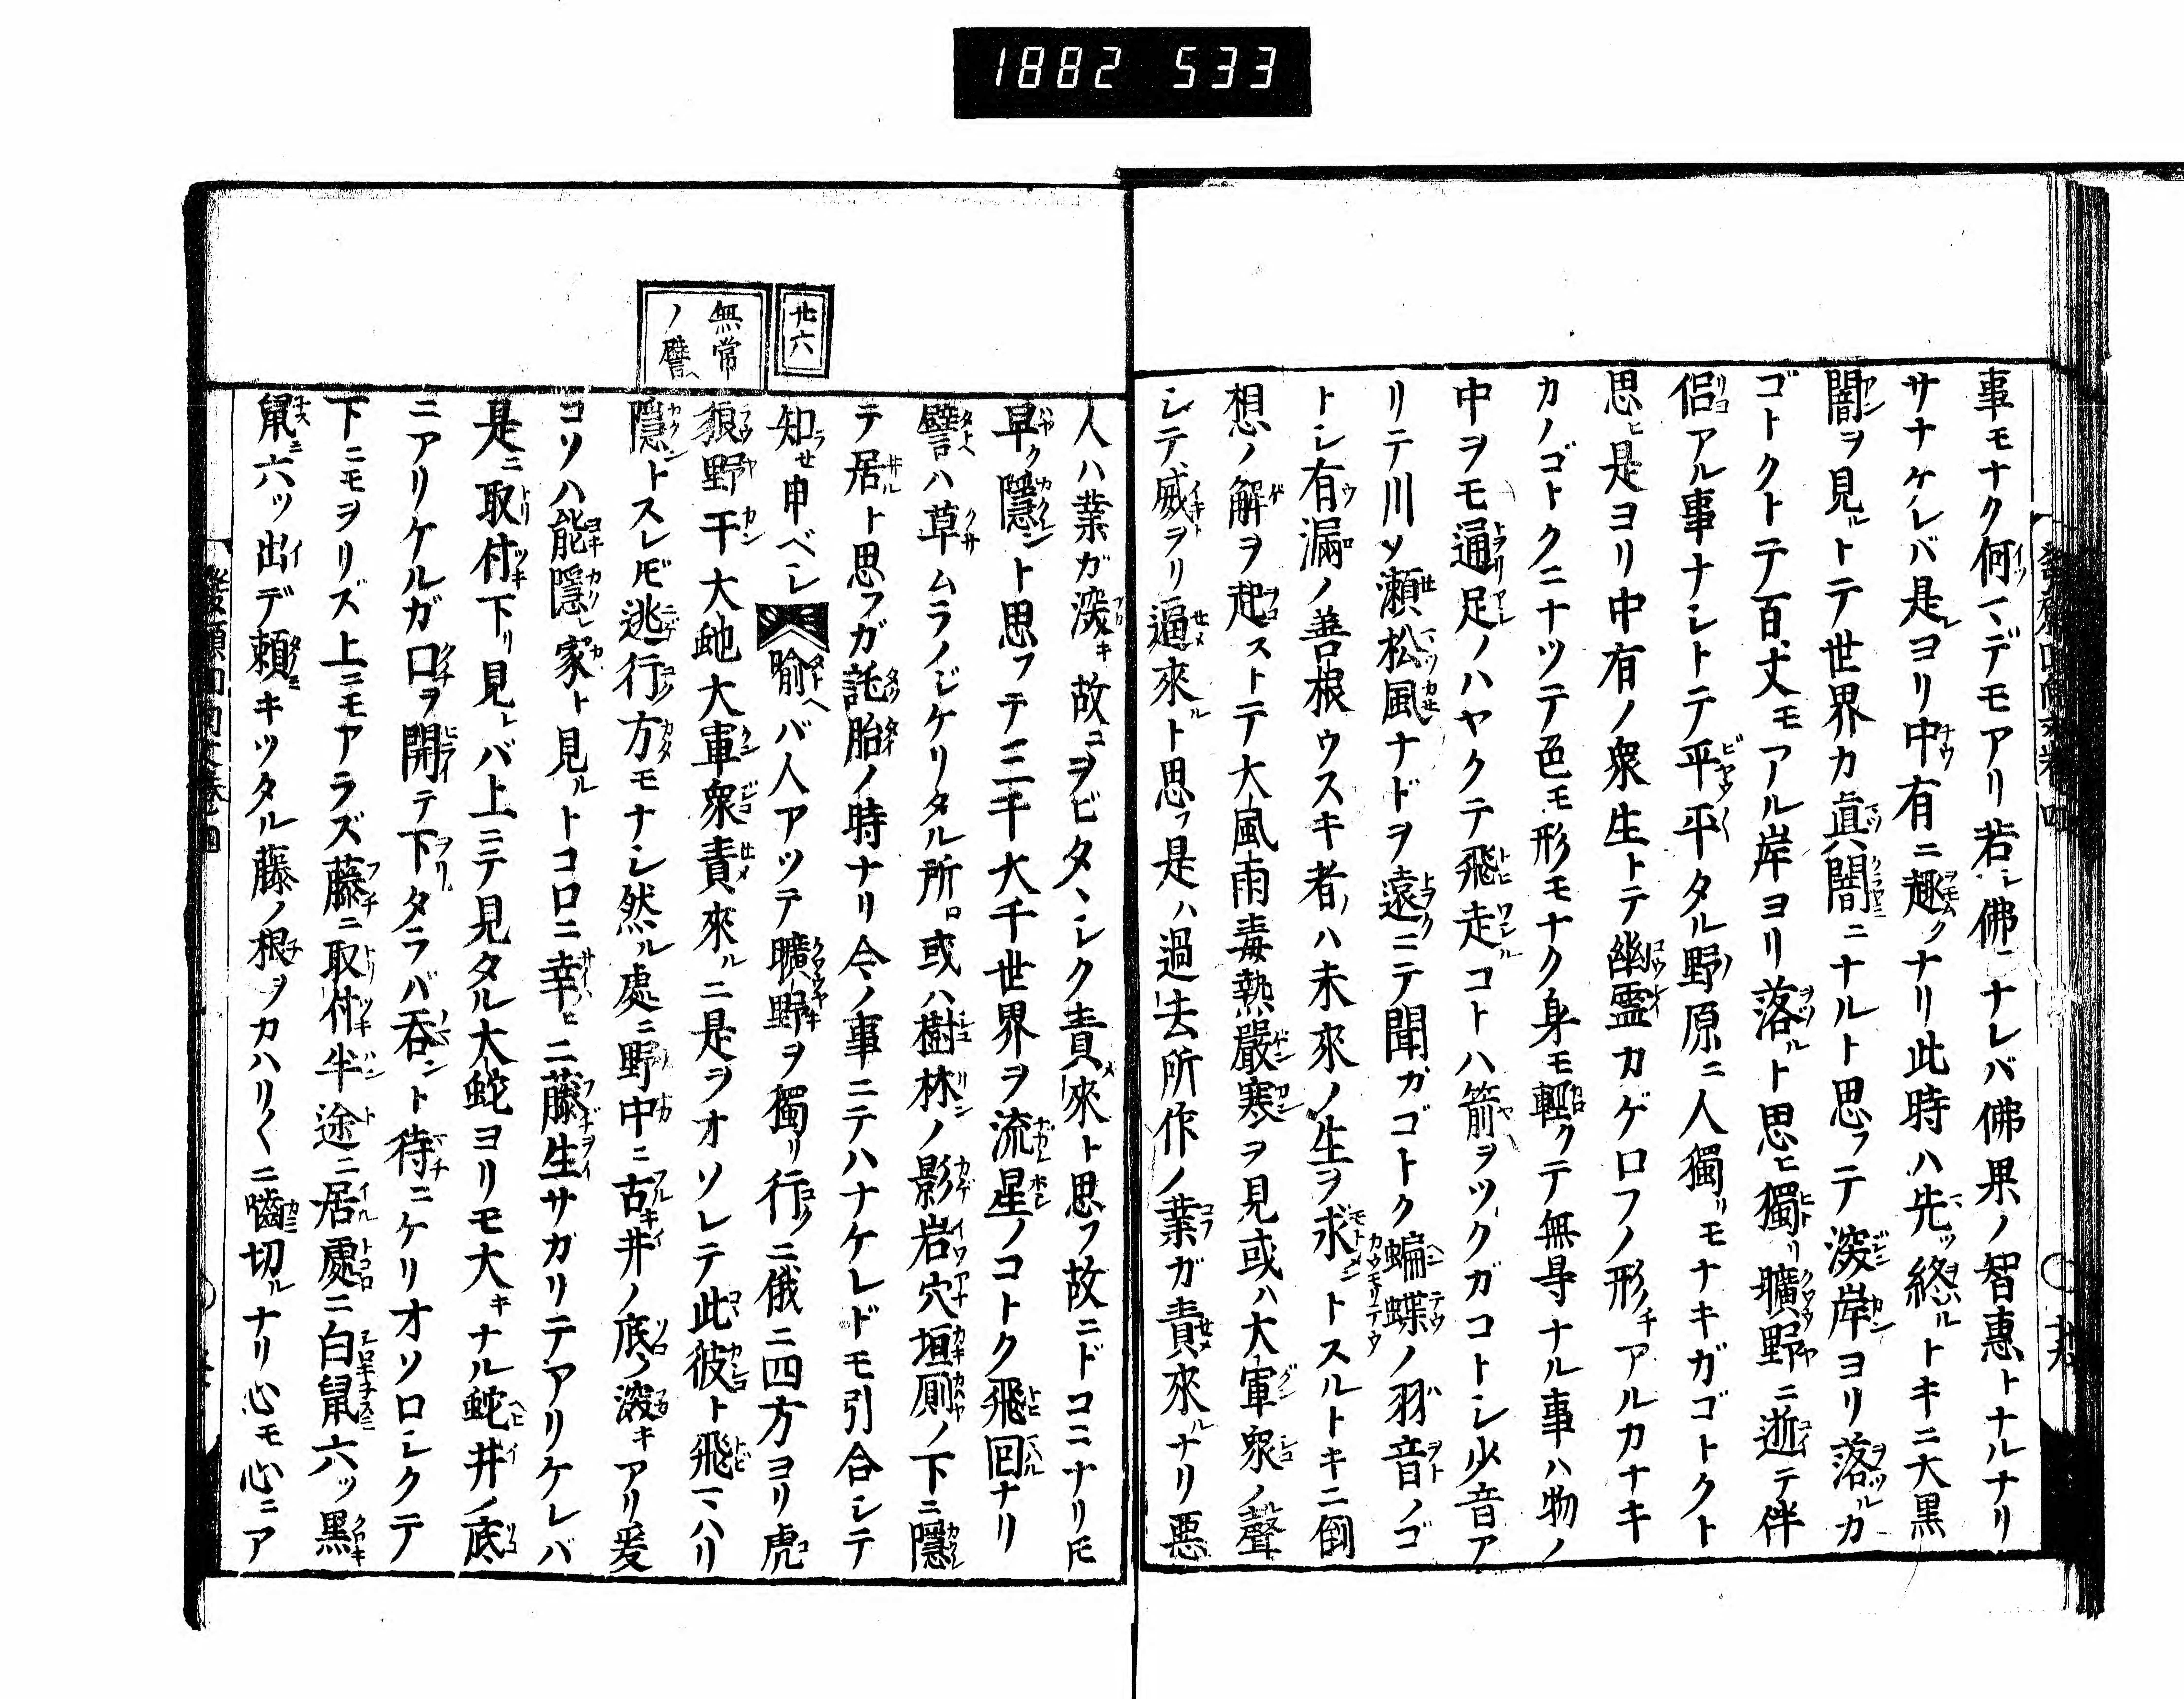 1882 533
事モナク何マデモアリ若シ佛ニナレバ佛果ノ智惠トナルナリ
サナケレバ是ヨリ中有ニ趣クナリ此時ハ先ツ終ルトキニ大黒
闇ヲ見ルトテ世界カ眞闇ニナルト思フテ深岸ヨリ落ルカ
ゴトクトテ百丈モアル岸ヨリ落ルト思ヒ獨リ曠野ニ逝テ伴
侶アル事ナシトテ平平タル野原ニ人獨リモナキガゴトクト
思ヒ是ヨリ中有ノ衆生トテ幽霊カゲロフノ形チアルカナキ
カノゴトクニナツテ色モ形モナク身モ輕クテ無㝵ナル事ハ物ノ
中ヲモ通リ足ノハヤクテ飛走コトハ箭ヲツクガコトシ少音ア
リテ川ノ瀬松風ナドヲ遠ニテ聞ガゴトク蝙蝶ノ羽音ノゴ
トシ有漏ノ善根ウスキ者ノハ未來ノ生ヲ求ントスルトキニ倒
想ノ解ヲ起ストテ大風雨毒熱嚴寒ヲ見或ハ大軍衆ノ聲
シテ威ヲリ逼來ルト思フ是ハ過去所作ノ業ガ責來ルナリ悪
廿六
無常
ノ譬
人ハ業ガ深キ故コヲビタヽシク責來ト思フ故ニドコニナリトモ
早ク隱ント思フテ三千大千世界ヲ流星ノコトク飛回ナリ
譬ハ草ムラノシケリタル所ロ或ハ樹林ノ影岩穴垣厠ノ下ニ隱
テ居ルト思フガ託胎ノ時ナリ今ノ事ニテハナケレドモ引合シテ
知セ申ベシ 喻ヘバ人アツテ曠野ヲ獨リ行クニ俄ニ四方ヨリ虎
狼野干大虵大軍衆責來ルニ是ヲオソレテ此彼ト飛マハリ
隱ントスレドモ逃行方モナシ然ル處ニ野中ニ古井ノ底ノ深キアリ爰
コソハ能隱レ家ト見ルトコロニ幸ヒニ藤生サガリテアリケレバ
是ニ取付下リ見レバ上ニテ見タル大蛇ヨリモ大キナル蛇井ノ底
ニアリケルガ口ヲ開テ下タラバ呑ント待ニケリオソロシクテ
下ニモヲリズ上ニモアラズ藤ニ取付半途ニ居處ニ白鼠六ツ黒
鼠六ツ出デ頼キツタル藤ノ根ヲカハリ〱ニ嚙切ルナリ心モ心ニア